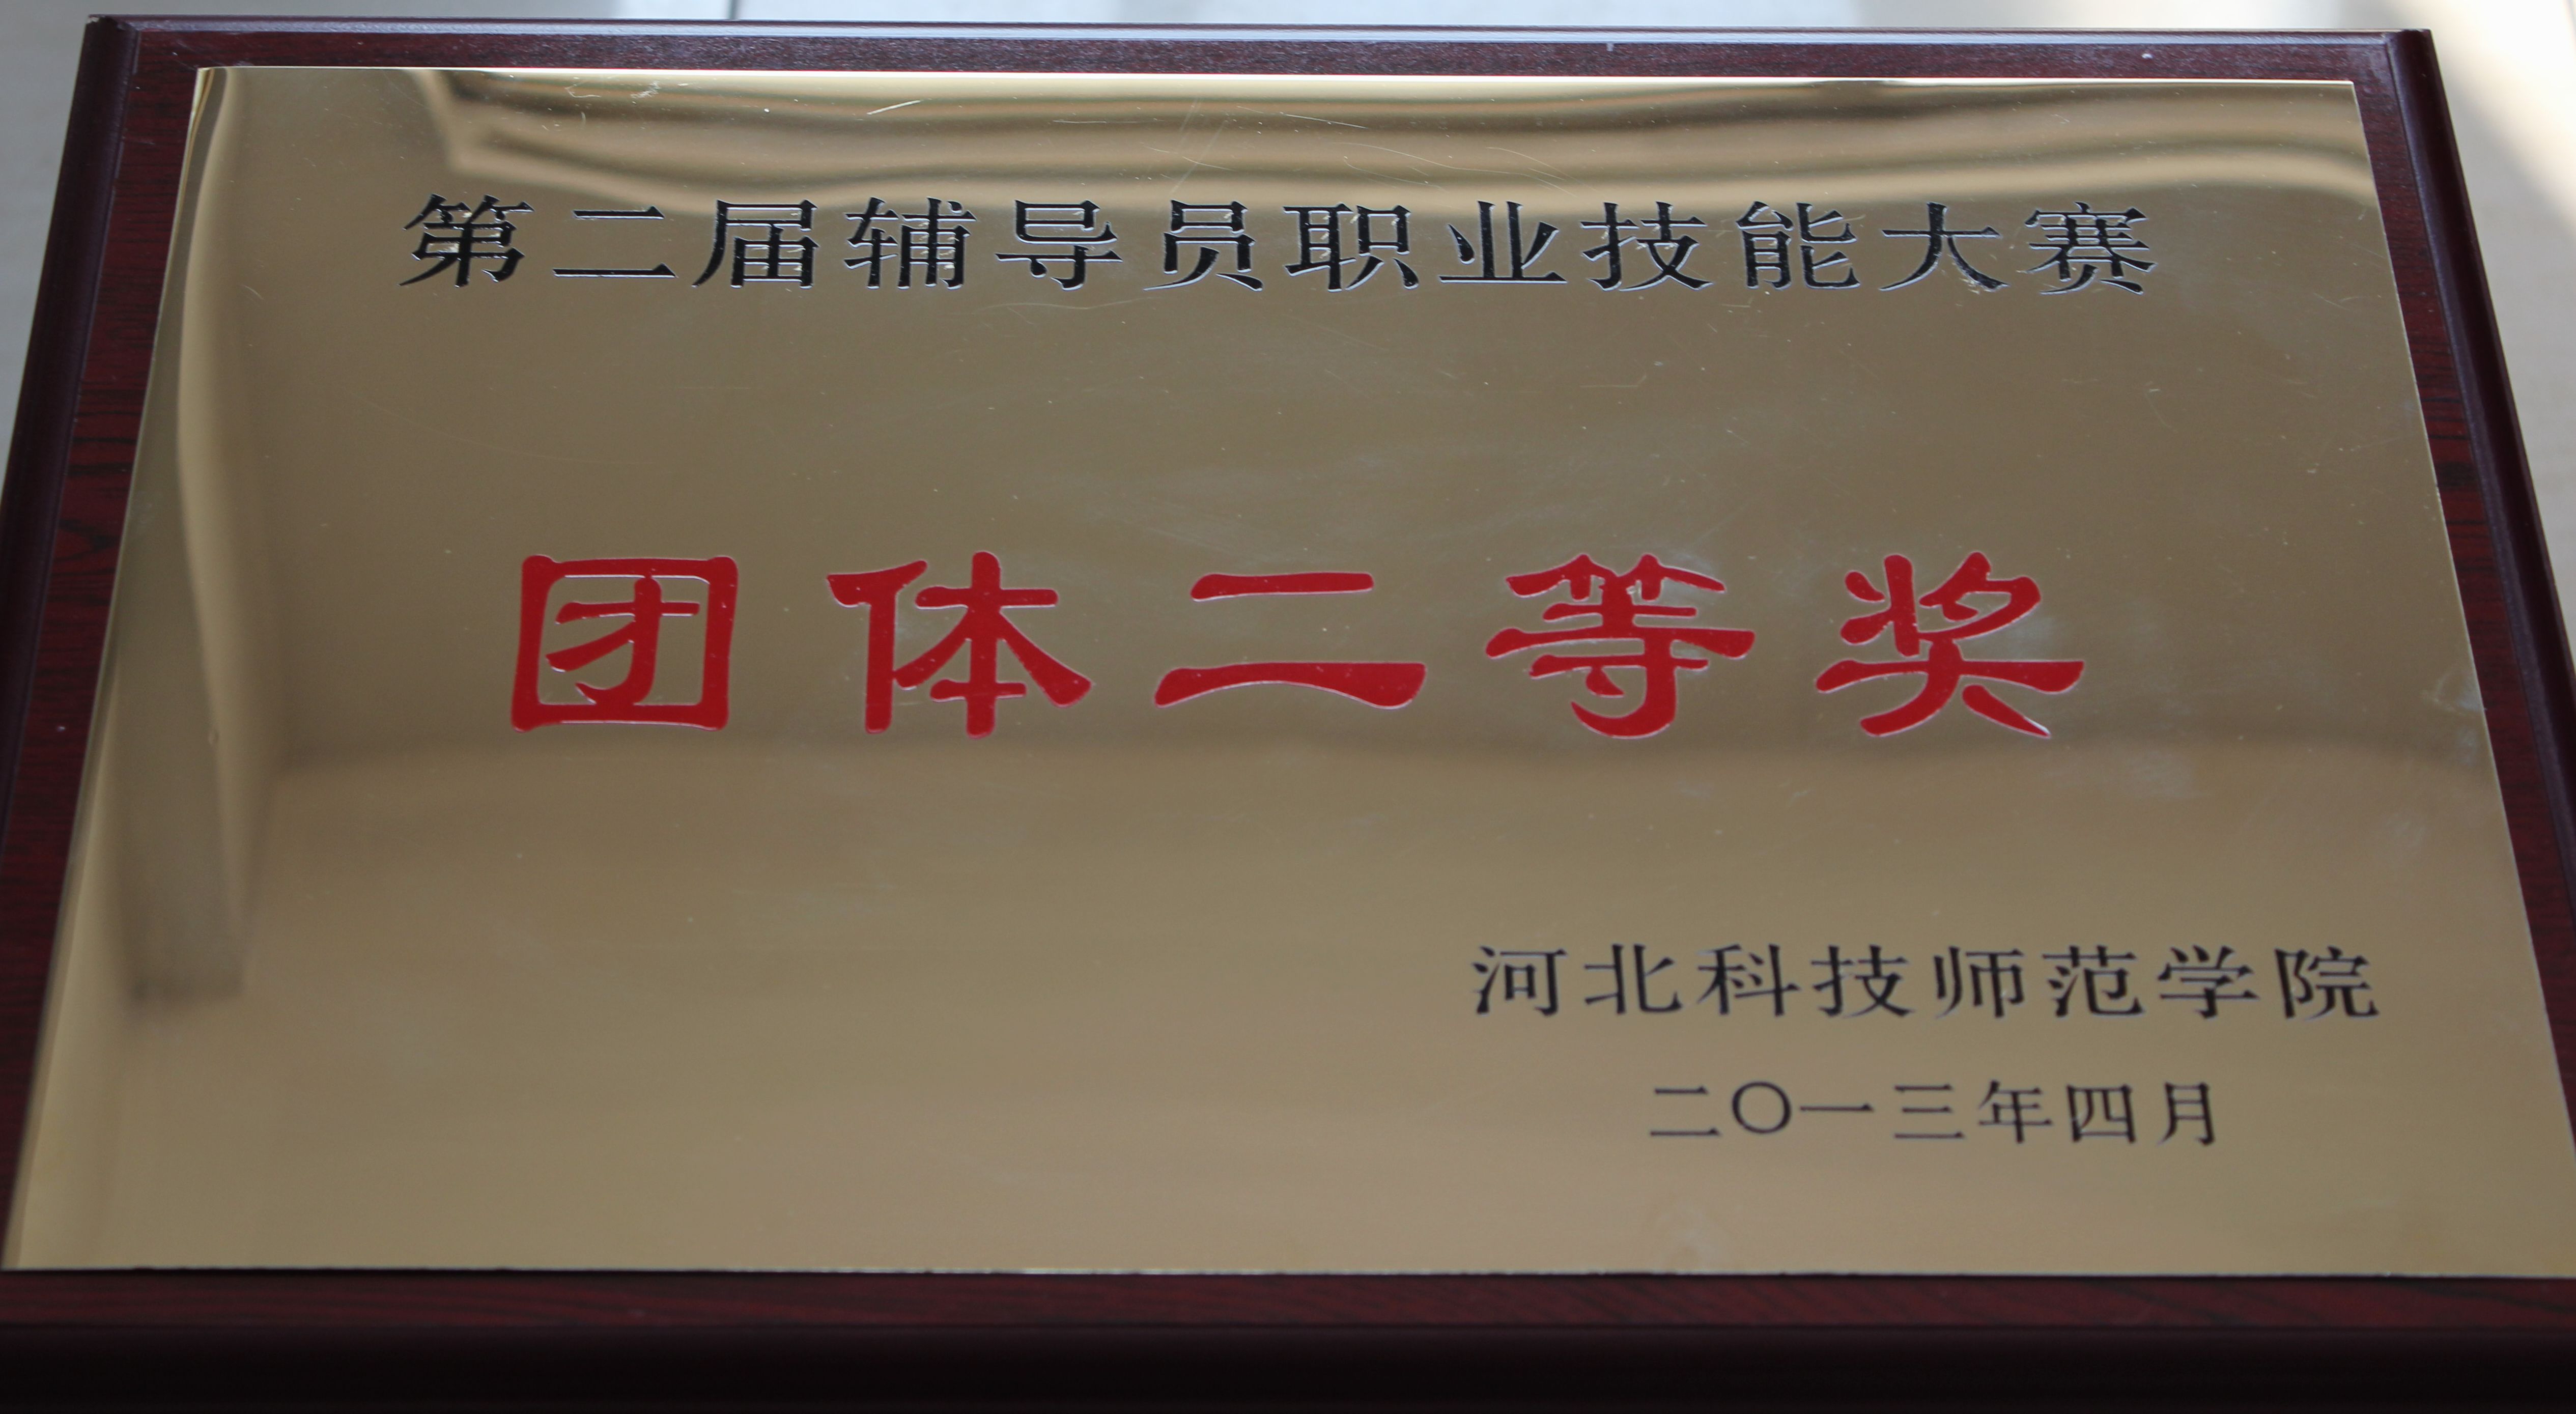 第二届辅导员职业技能大赛
团体二等奖
河北科技师范学院
二〇一三年四月